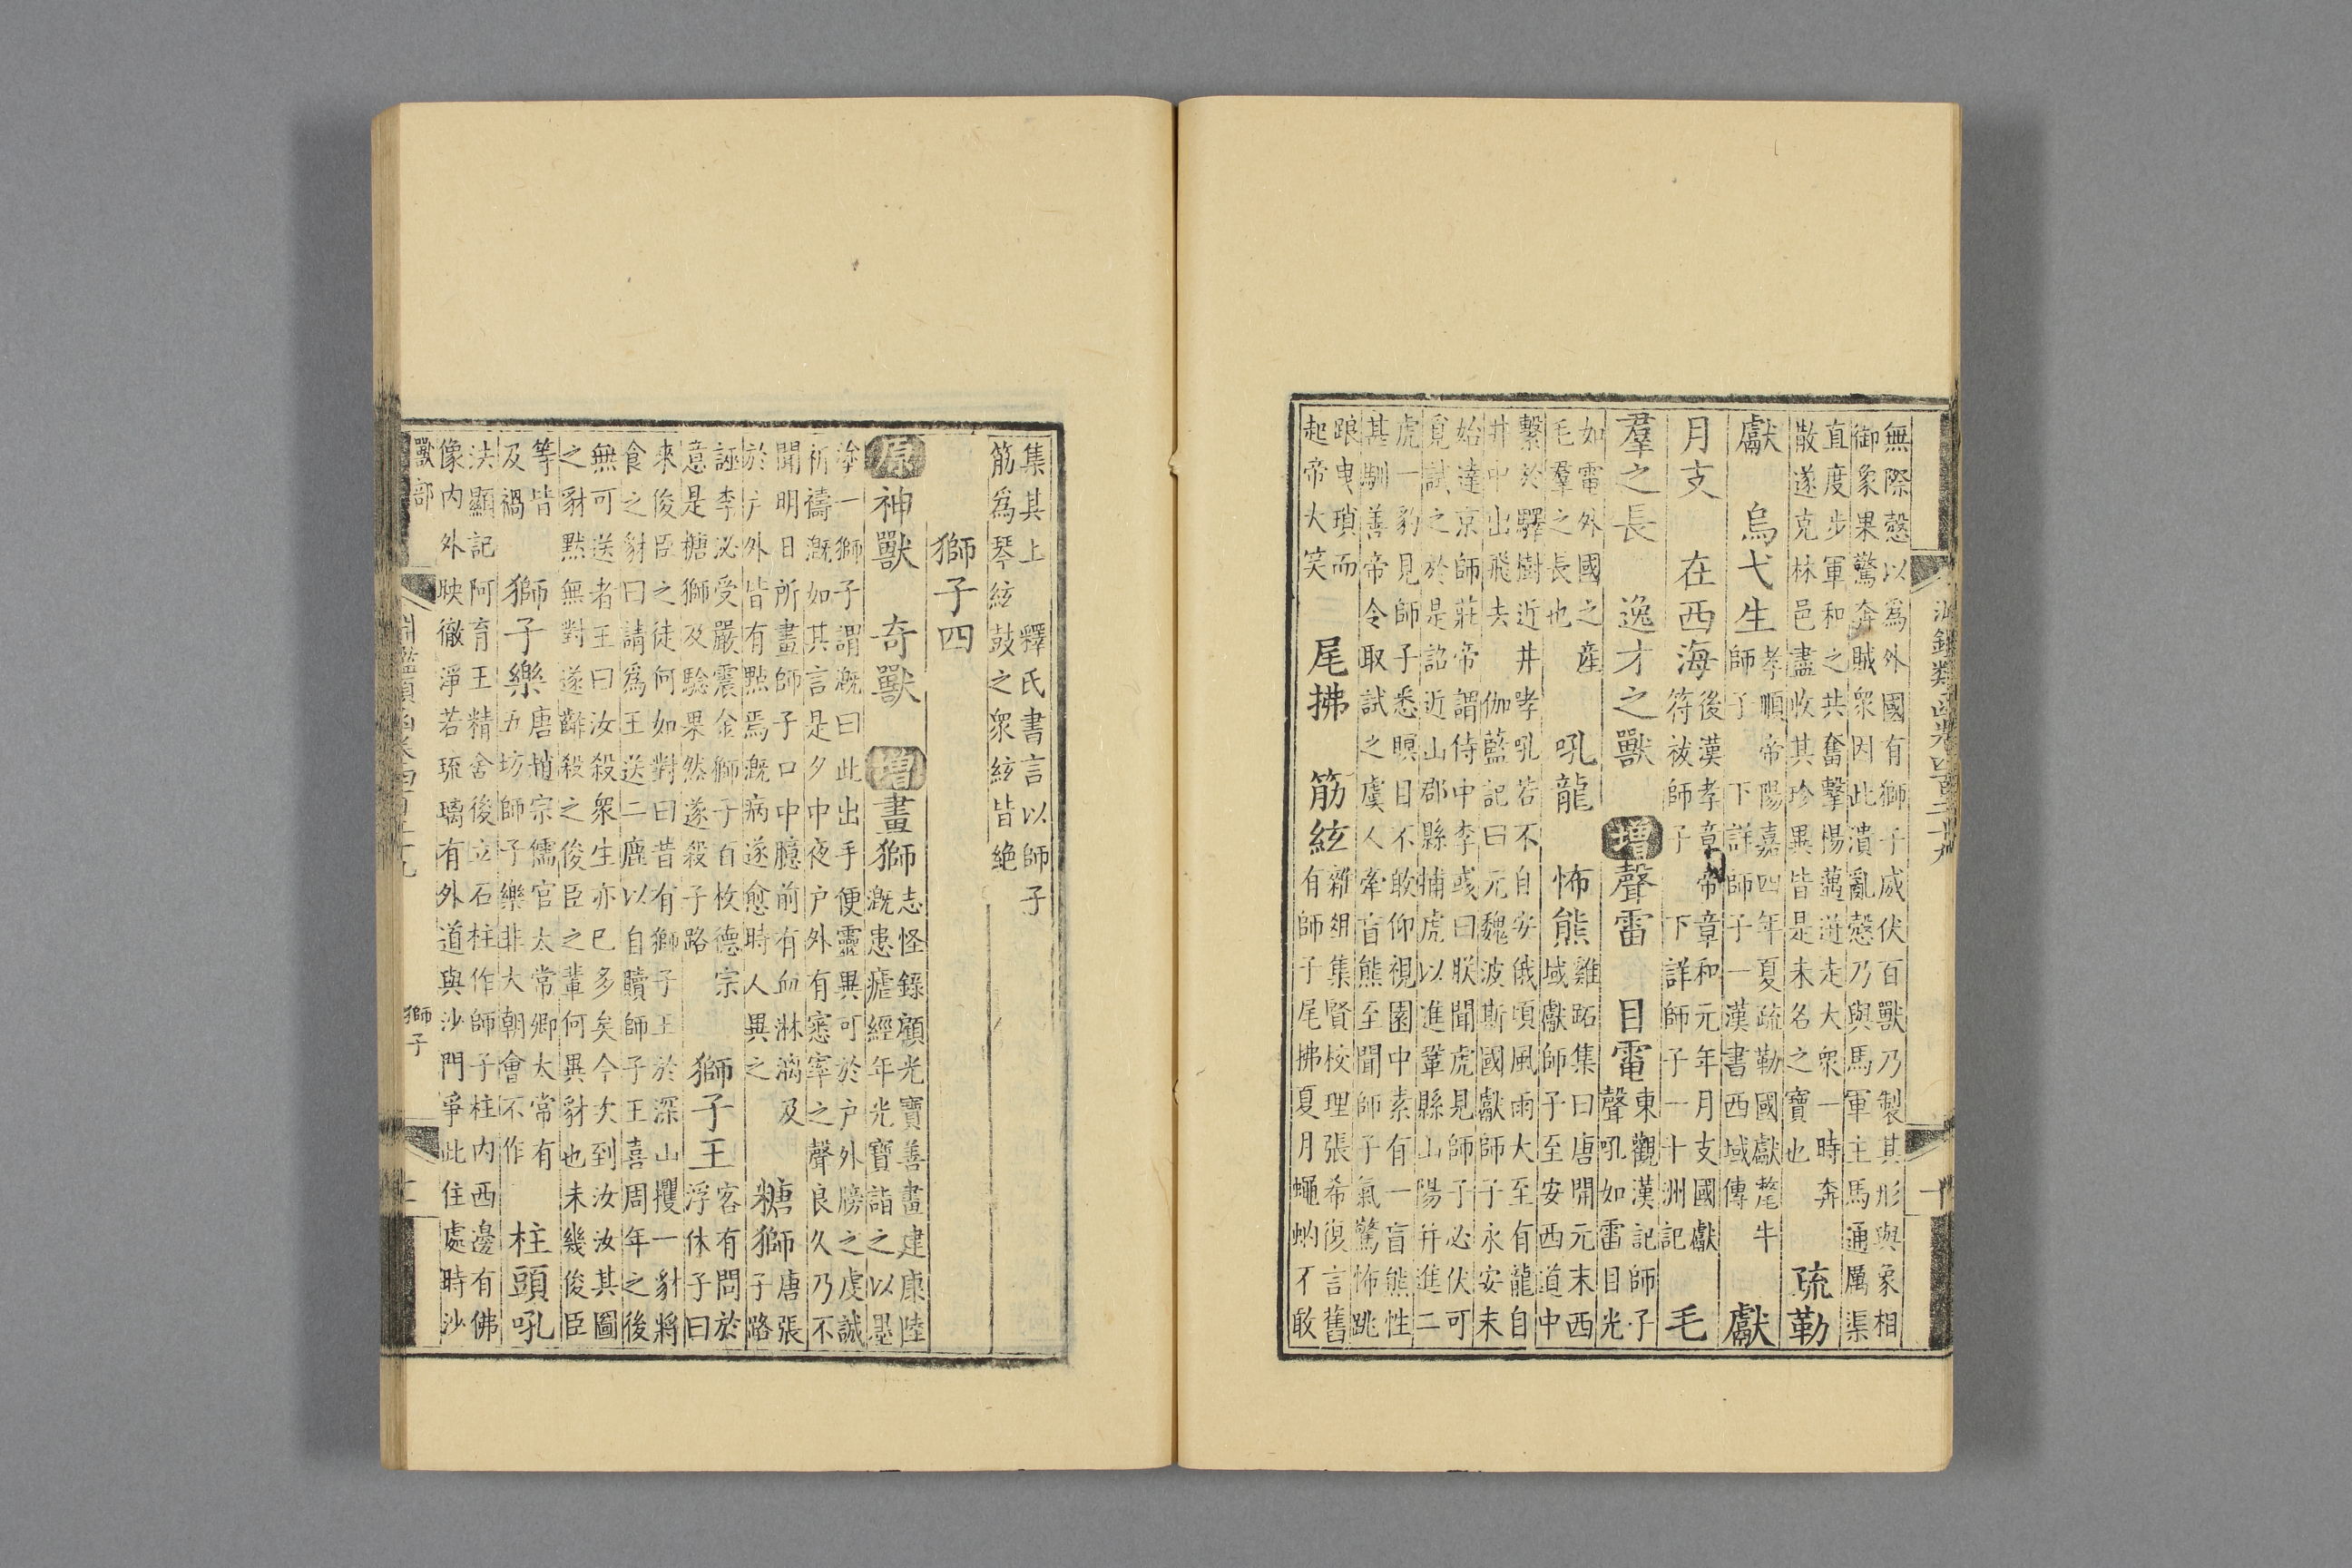 無際慤以爲外國有獅子威伏百獸乃製其形與象相
御象果驚奔賊衆因此潰亂慤乃與馬軍主馬通厲渠
直度步軍和之共奮擊惕藹迸走大衆一時奔
散遂克林邑盡收其珍異皆是未名之寶也
疏勒
獻 烏弋生
孝順帝陽嘉四年夏疏勒國獻犛牛
師子 下詳師子一 漢書西域傳
獻
月支 在西海
後漢孝章帝章和元年月支國獻
符祓師子 下詳師子一 十洲記
毛
羣之長 逸才之獸 增聲雷 目電
東觀漢記師子
聲吼如雷目光
如電外國之産
毛羣之長也
吼龍 怖熊
雞跖集曰唐開元末西
域獻師子至安西道中
繫於驛樹近井哮吼若不自安俄頃風雨大至有龍自
井中出飛去 伽藍記曰元魏波斯國獻師子永安末
始達京師莊帝謂侍中李彧曰朕聞虎見師子必伏可
覓試之於是詔近山郡縣捕虎以進鞏縣山陽并進二
虎一豹見師子悉瞑目不敢仰視園中素有一盲熊性
甚馴善帝令取試之虞人牽盲熊至聞師子氣驚怖跳
踉曳瑣而
起帝大笑
尾拂 筋絃
雜俎集賢校理張希復言舊
有師子尾拂夏月蠅蚋不敢
集其上 釋氏書言以師子
筋爲琴絃鼓之衆絃皆絶
獅子四
原神獸 奇獸 增畫獅
志怪錄顧光寶善畫建康陸
溉患瘧經年光寶詣之以墨
塗一獅子謂溉曰此出手便靈異可於户外牓之虔誠
祈禱溉如其言是夕中夜户外有窸窣之聲良久乃不
聞明日所畫師子口中臆前有血淋漓及
於户外皆有點焉溉病遂愈時人異之
糖獅
唐張
子路
誣李泌受嚴震金獅子百枚德宗
意是糖獅及騐果然遂殺子路
獅子王
客有問於
浮休子曰
來俊臣之徒何如對曰昔有獅子王於深山攫一豺將
食之豺曰請爲王送二鹿以自贖師子王喜周年之後
無可送者王曰汝殺衆生亦已多矣今次到汝汝其圖
之豺默無對遂齚殺之俊臣之輩何異豺也未幾俊臣
等皆
及禍
獅子樂
唐趙宗儒官太常卿太常有
五坊師子樂非大朝會不作
柱頭吼
法顯記阿育王精舍後立石柱作師子柱内西邊有佛
像内外映徹淨若琉璃有外道與沙門爭此住處時沙
獸部
獅子